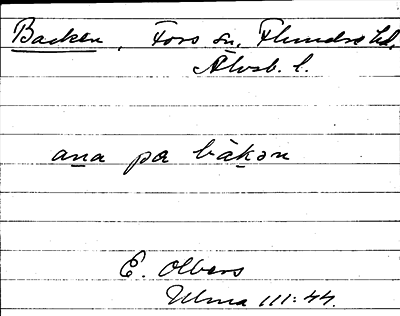 Backen, Fors sn, Flundre hd,
Älvsb. l.
ana pa bàkən
E. Olbers
Ulma 111:44.